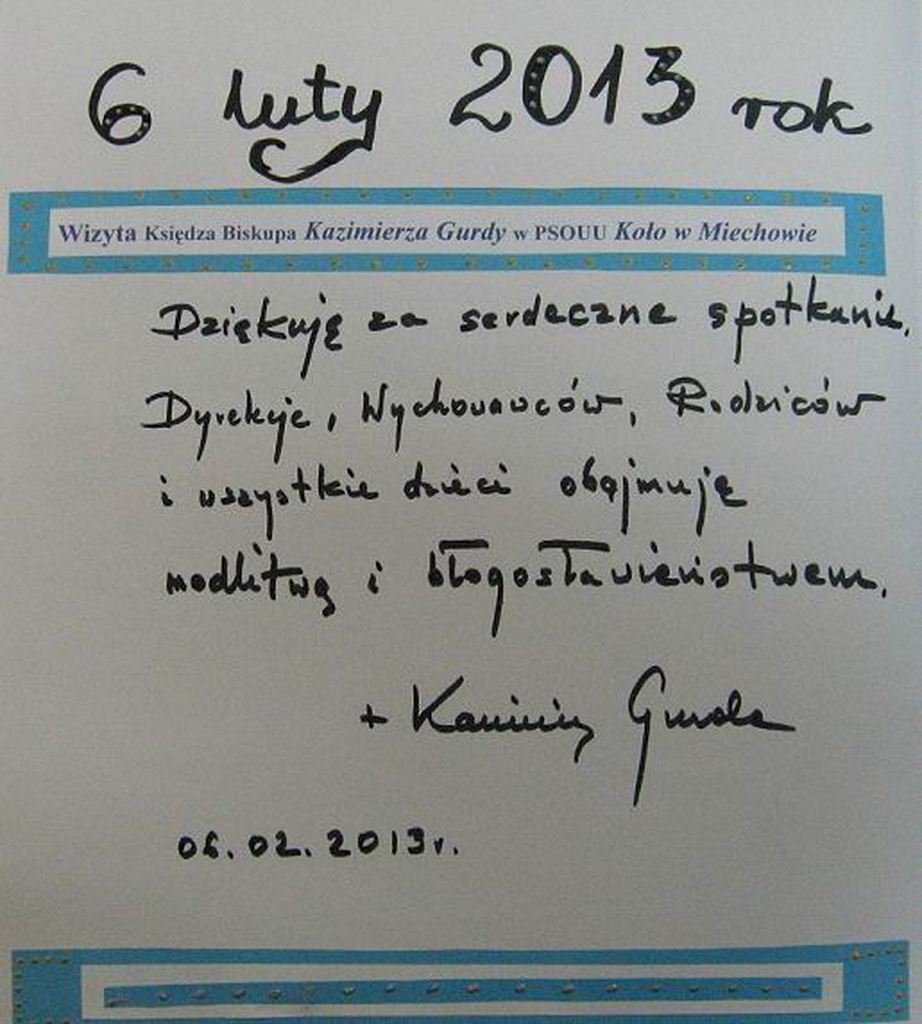 6 luty 2013 rok
Wizyta Księdza Biskupa Kazimierza Gurdy w PSOUU Koło w Miechowie
Dziękuję za serdeczne spotkanie.
Dyrekcje, Wychowawców, Rodziców
i wszystkie dzieci obejmuję
modlitwą i błogosławieństwem.
+ Kazimierz Gurda
06.02.2013r.